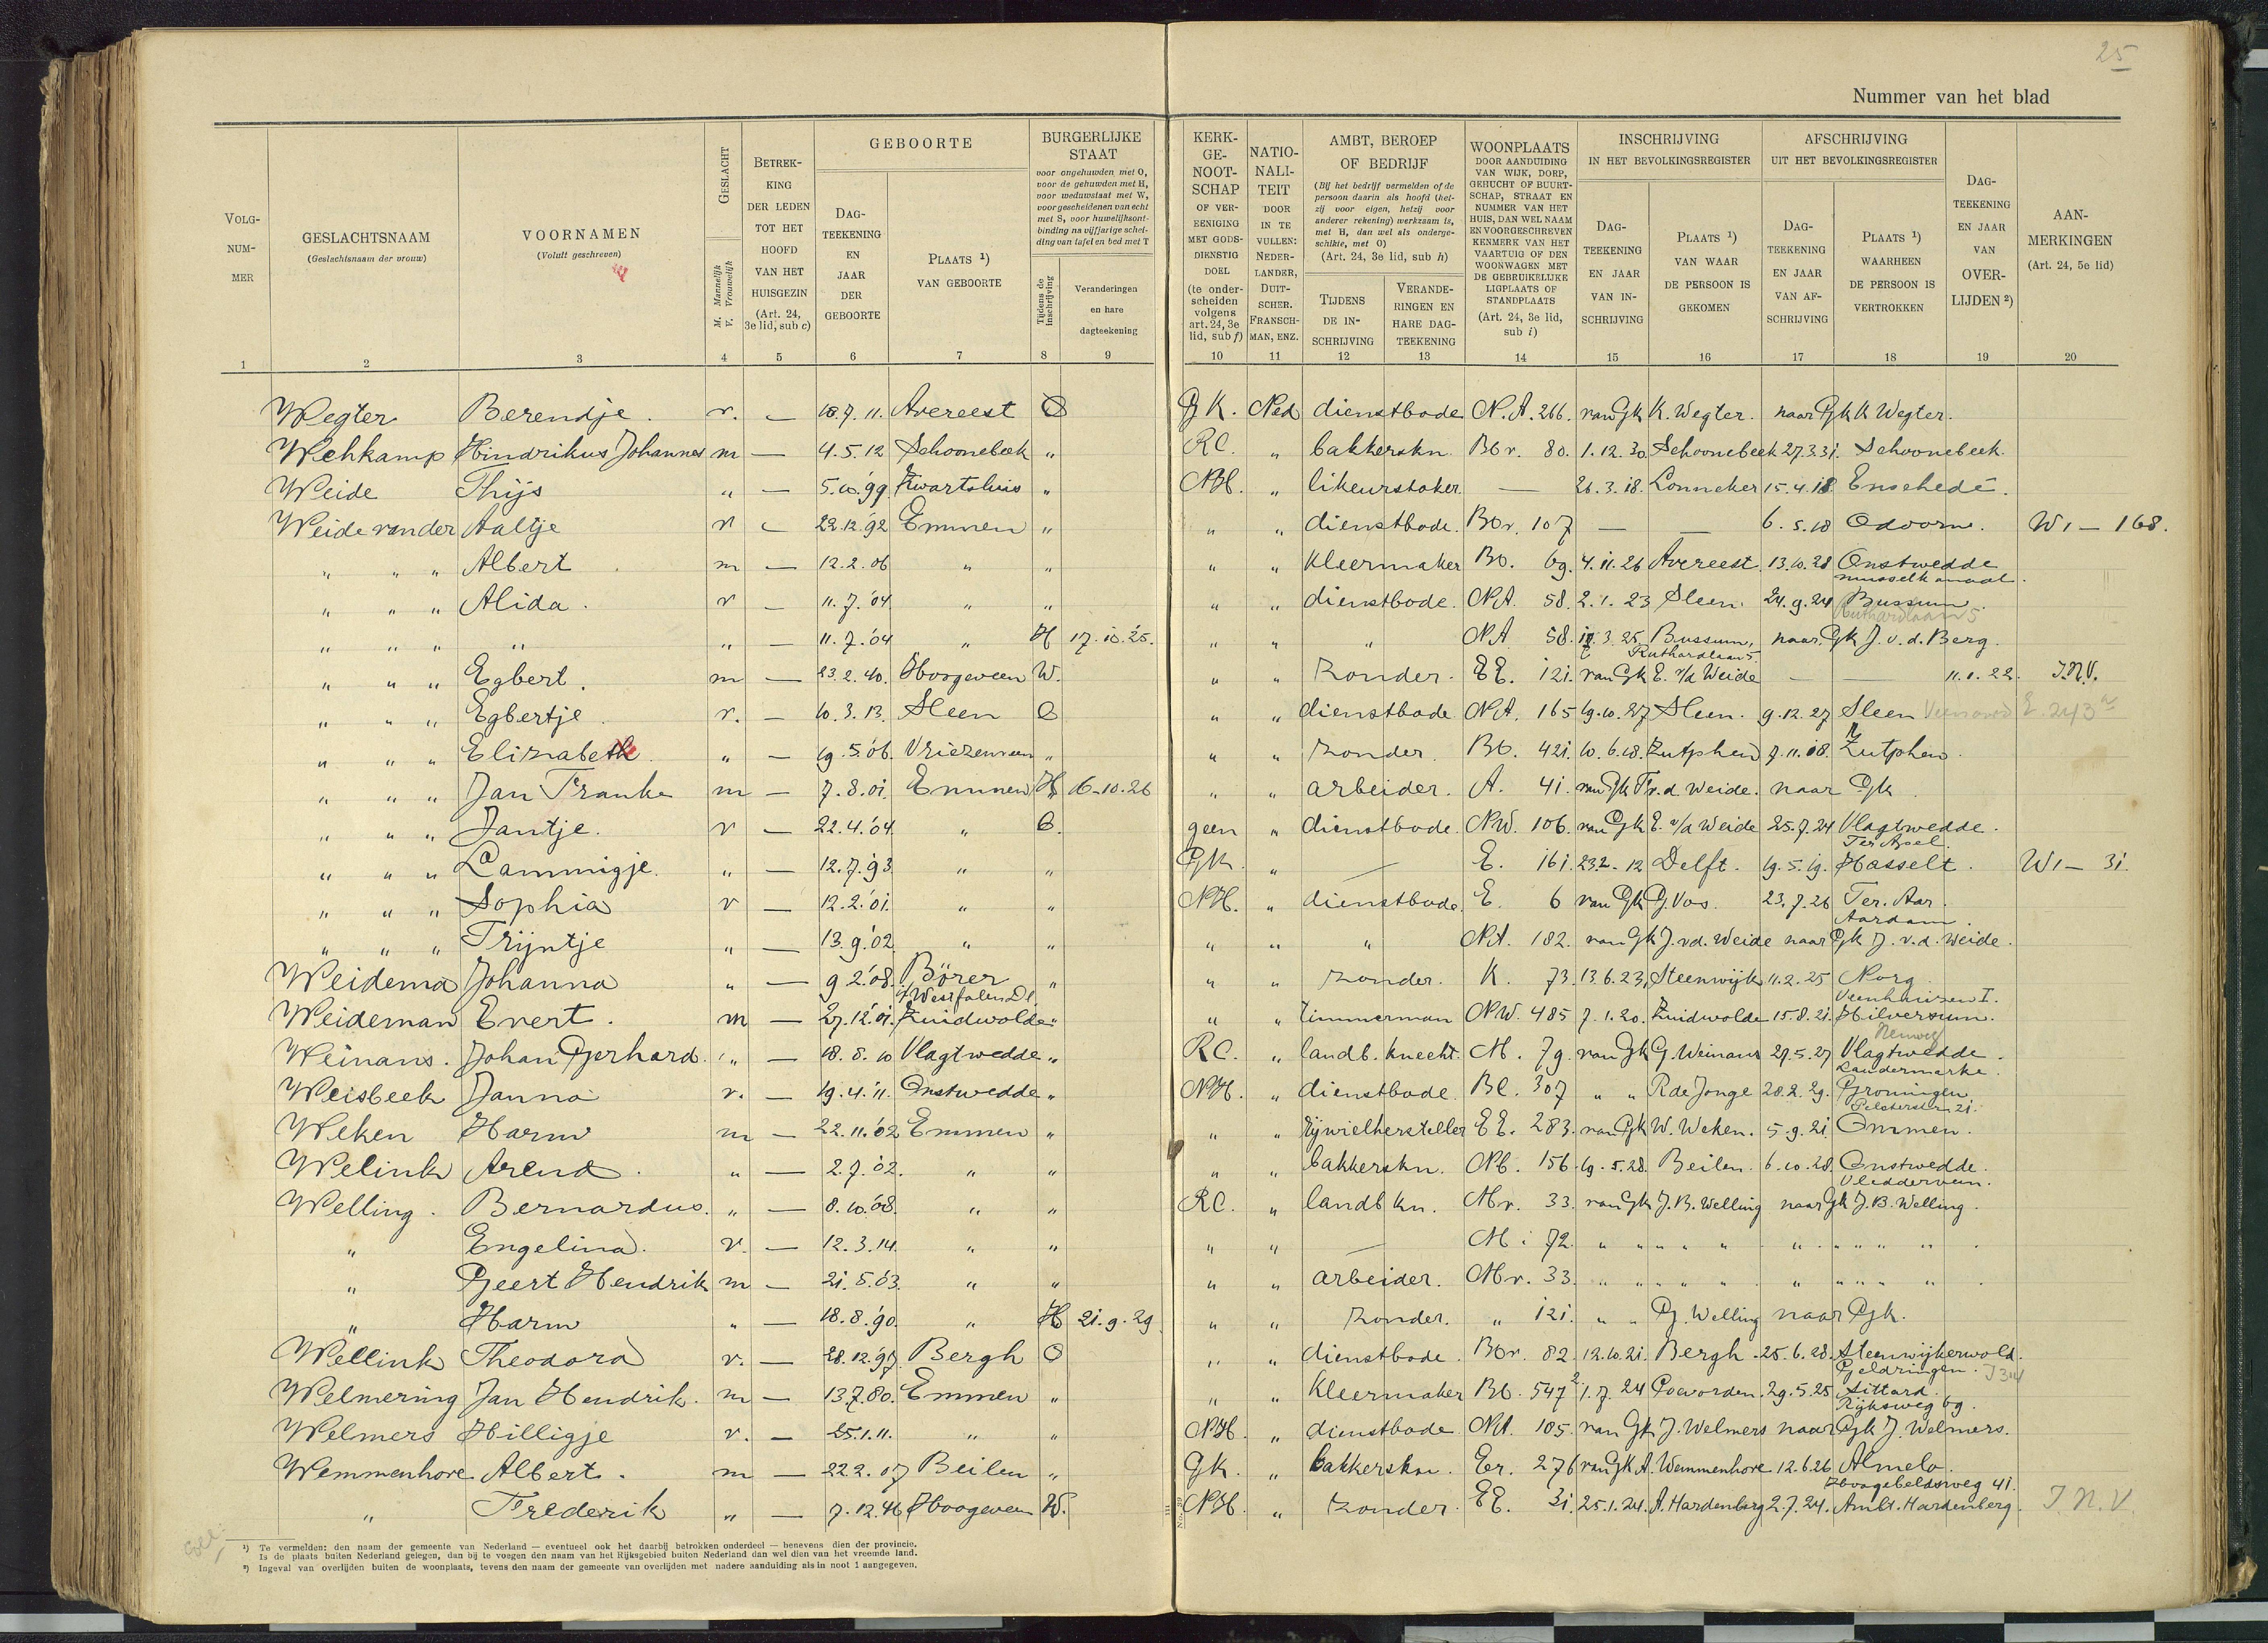 25
Nummer van het blad
VOLG-NUM-MER
GESLACHTSNAAM
(Geslachtsnaam der vrouw)
VOORNAMEN
(Voluit geschreven)
GESLACHT
M. Mannelijk
V. Vrouwelijk
BETREK-KING DER LEDEN TOT HET HOOFD VAN HET HUISGEZIN
(Art. 24, 3e lid, sub c)
GEBOORTE
DAG-TEEKENING EN JAAR DER GEBOORTE
PLAATS 1) VAN GEBOORTE
BURGERLIJKE STAAT
voor ongehuwden met O, voor de gehuwden met H, voor weduwstaat met W, voor gescheidenen van echt met S, voor huwelijksontbinding na vijfjarige scheiding van tafel en bed met T
Tijdens de inschrijving
Veranderingen en hare dagteekening
KERK-GE-NOOT-SCHAP OF VER-EENIGING MET GODS-DIENSTIG DOEL
(te onderscheiden volgens art. 24, 3e lid, sub f)
NATIO-NALI-TEIT DOOR IN TE VULLEN: NEDER-LANDER, DUIT-SCHER, FRANSCH-MAN, ENZ.
AMBT, BEROEP OF BEDRIJF
(Bij het bedrijf vermelden of de persoon daarin als hoofd (hetzij voor eigen, hetzij voor anderer rekening) werkzaam is, met H, dan wel als ondergeschikte, met O)
(Art. 24, 3e lid, sub h)
TIJDENS DE IN-SCHRIJVING
VERANDE-RINGEN EN HARE DAG-TEEKENING
WOONPLAATS
DOOR AANDUIDING VAN WIJK, DORP, GEHUCHT OF BUURT-SCHAP, STRAAT EN NUMMER VAN HET HUIS, DAN WEL NAAM EN VOORGESCHREVEN KENMERK VAN HET VAARTUIG OF DEN WOONWAGEN MET DE GEBRUIKELIJKE LIGPLAATS OF STANDPLAATS
(Art. 24, 3e lid, sub i)
INSCHRIJVING
IN HET BEVOLKINGSREGISTER
DAG-TEEKENING EN JAAR VAN IN-SCHRIJVING
PLAATS 1) VAN WAAR DE PERSOON IS GEKOMEN
AFSCHRIJVING
UIT HET BEVOLKINGSREGISTER
DAG-TEEKENING EN JAAR VAN AF-SCHRIJVING
PLAATS 1) WAARHEEN DE PERSOON IS VERTROKKEN
DAG-TEEKENING EN JAAR VAN OVER-LIJDEN 2)
AAN-MERKINGEN
(Art. 24, 5e lid)
1 2 3 4 5 6 7 8 9 10 11 12 13 14 15 16 17 18 19 20
Wegter Berendje. v. — 18.7.11. Avereest O GK. Ned dienstbode N.A. 266. van Gk K. Wegter. naar Gk K Wegter.
Wehkamp Hindrikus Johannes m — 4.5.12 Schoonebeek " RC. " bakkerskn. Bov. 80. 1.12.30 Schoonebeek 27.3.31. Schoonebeek.
Weide Thijs " — 5.10.'99 Zwartsluis " NH. " likeurstoker. — 26.3.18. Lonneker 15.4.18 Enschedé.
Weide van der Aaltje v — 22.12.'92 Emmen " " " dienstbode. Bov. 107 — 6.5.18 Odoorn. W1 — 168.
" " " Albert m — 12.2.06 " " " " Kleermaker Bo. 69. 4.11.26 Avereest. 13.10.28 Onstwedde
Musselkanaal.
" " " Alida. v — 11.7.'04 " " " " dienstbode. NA. 58. 2.1.23 Sleen. 24.9.24 Bussum.
Ruthardlaan 5
" " " " " — 11.7.'04 " H 17.10.'25. " " " NA 58. 3.25. Bussum, naar Gk J. v.d. Berg.
Ruthardlaan 5.
" " " Egbert. m — 23.2.40. Hoogeveen W. " " Zonder. EE. 121. van Gk E. v/d Weide — — 11.1.22. I.N.V.
" " " Egbertje. v. — 10.3.13. Sleen O " " dienstbode NA. 165 19.10.27 Sleen. 9.12.27 Sleen Veenoord E. 243a
" " " Elizabeth. " — 19.5.'06. Vriezenveen " " " Zonder. Bb. 421. 10.6.18. Zutphen 7.11.18. Zutphen.
" " " Jan Franke m — 7.8.01. Emmen H 16-10.26 " " arbeider. A. 41. van Gk F. v.d. Weide. naar Gk
" " " Jantje. v — 22.4.'04. " O. geen " dienstbode. NW. 106. van Gk E. v/d Weide 25.7.24 Vlagtwedde.
Ter Apel.
" " " Lammigje. " — 12.7.'93. " " GK. " — E. 161. 23.2-12 Delft. 19.5.19. Hasselt. W1 — 31.
" " " Sophia v — 12.2.'01. " " NH. " dienstbode. E. 6 van Gk G. Vos. 23.7.26 Ter. Aar.
Aardam.
" " " Trijntje " — 13.9.'02 " " " " " NA. 182. van Gk J. v.d. Weide naar Gk J. v.d. Weide.
Weidema Johanna " — 9.2.'08. Börer " " " Zonder. K. 73. 13.6.23, Steenwijk 11.2.25 Norg
i/Westfalen Dl. Veenhuizen I.
Weideman Evert. m — 27.12.'01. Zuidwolde " " " timmerman NW. 485 7.1.20. Zuidwolde 15.8.21. Hilversum.
Weinans. Johan Gerhard. " — 18.8.10 Vlagtwedde " RC. " landb. knecht. M. 79. van Gk G. Weinans 27.5.27 Vlagtwedde.
Laudermarke.
Weisbeek Janna v. — 19.4.'11. Onstwedde " NH. " dienstbode. Bl. 307 " " R de Jonge 28.2.29. Groningen
Pelsterstr. 21.
Weken Harm m — 22.11.'02 Emmen " " " Rijwielhersteller EE. 283. van Gk W. Weken. 5.9.21. Ommen.
Welink Arend. " — 2.7.'02. " " " " bakkerskn. Nb. 156. 19.5.28. Beilen. 6.10.28. Onstwedde.
Vledderveen.
Welling. Bernardus. " — 8.10.'08. " " RC. " landb kn. Mv. 33. van Gk J.B. Welling naar Gk J.B. Welling.
" Engelina. v. — 12.3.14. " " " " — M i 72. " " " " " " " " " "
" Geert Hendrik m — 21.5.'03. " " " " arbeider. Mv. 33. " " " " " " " " " "
" Harm " — 18.8.'90. " H 21.9.29 " " Zonder. " 121. " " G. Welling naar Gk.
Wellink Theodora v. — 28.12.'97 Bergh O " " dienstbode. Bov. 82 12.10.21. Bergh. 25.6.28. Steenwijkerwold.
Geldringen. J 34
Welmering Jan Hendrik. m — 13.7.80. Emmen " " " Kleermaker Bb. 547 2 1.7.24 Coevorden. 29.5.25 Sittard.
Rijksweg 69.
Welmers Hilligje v. — 25.1.11. " " NH. " dienstbode NA. 105. van Gk J. Welmers naar Gk J. Welmers.
Wemmenhove Albert. m — 22.2.07 Beilen " Gk. " bakkerskn. Er. 276 van Gk A. Wemmenhove 12.6.26 Almelo.
Hoogebeldsweg 41.
" Frederik " — 7.12.46 Hoogeveen W. NH. " Zonder. EE. 31. 25.1.24. A. Hardenberg 2.7.24. Ambt. Hardenberg. I.N.V.
1) Te vermelden: den naam der gemeente van Nederland — eventueel ook het daarbij betrokken onderdeel — benevens dien der provincie.
Is de plaats buiten Nederland gelegen, dan bij te voegen den naam van het Rijksgebied buiten Nederland dan wel dien van het vreemde land.
2) Ingeval van overlijden buiten de woonplaats, tevens den naam der gemeente van overlijden met nadere aanduiding als in noot 1 aangegeven.